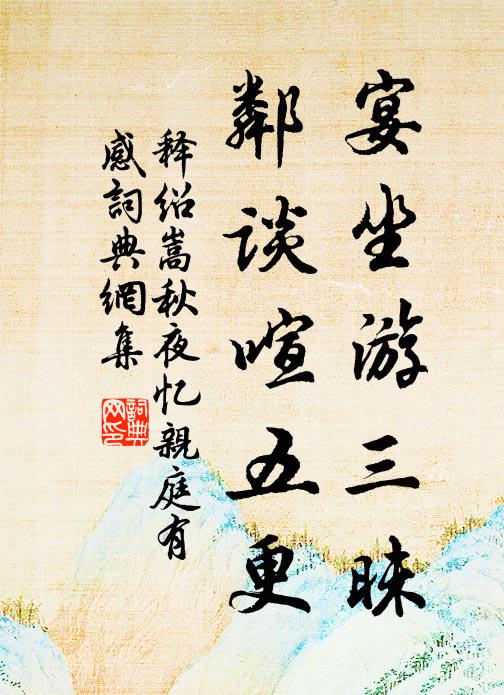 宴坐游三昧
鄰谈喧五更
释绍嵩秋夜忆親庭有
感詞典網集
詞典
网印